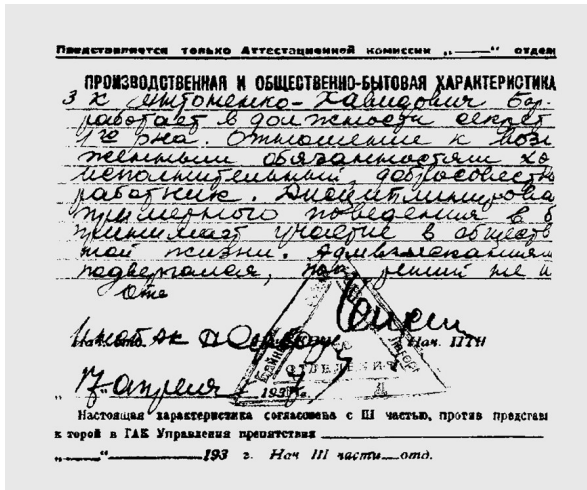 Представляется только Аттестационной комиссии „——“ отдел
ПРОИЗВОДСТВЕННАЯ И ОБЩЕСТВЕННО-БЫТОВАЯ ХАРАКТЕРИСТИКА
З к Антоненко-Давидович Бор.
работает в должности секрет
1го р-на. Отношение к возл
женным обязанностям хо
исполнительный, добросовестн
работник. Дисциплинирова
примерного поведения в б
принимает участие в обществ
ной жизни. Адмвзысканиям
подвергался,
Нач. отд. Нач. ППЧ
ОТДЕЛЕНИЕ
„17“ апреля 193 г.
Настоящая характеристика согласована с III частью, против представл
к торой в ГАК Управления препятствия
„——“ 193 г. Нач III части отд.